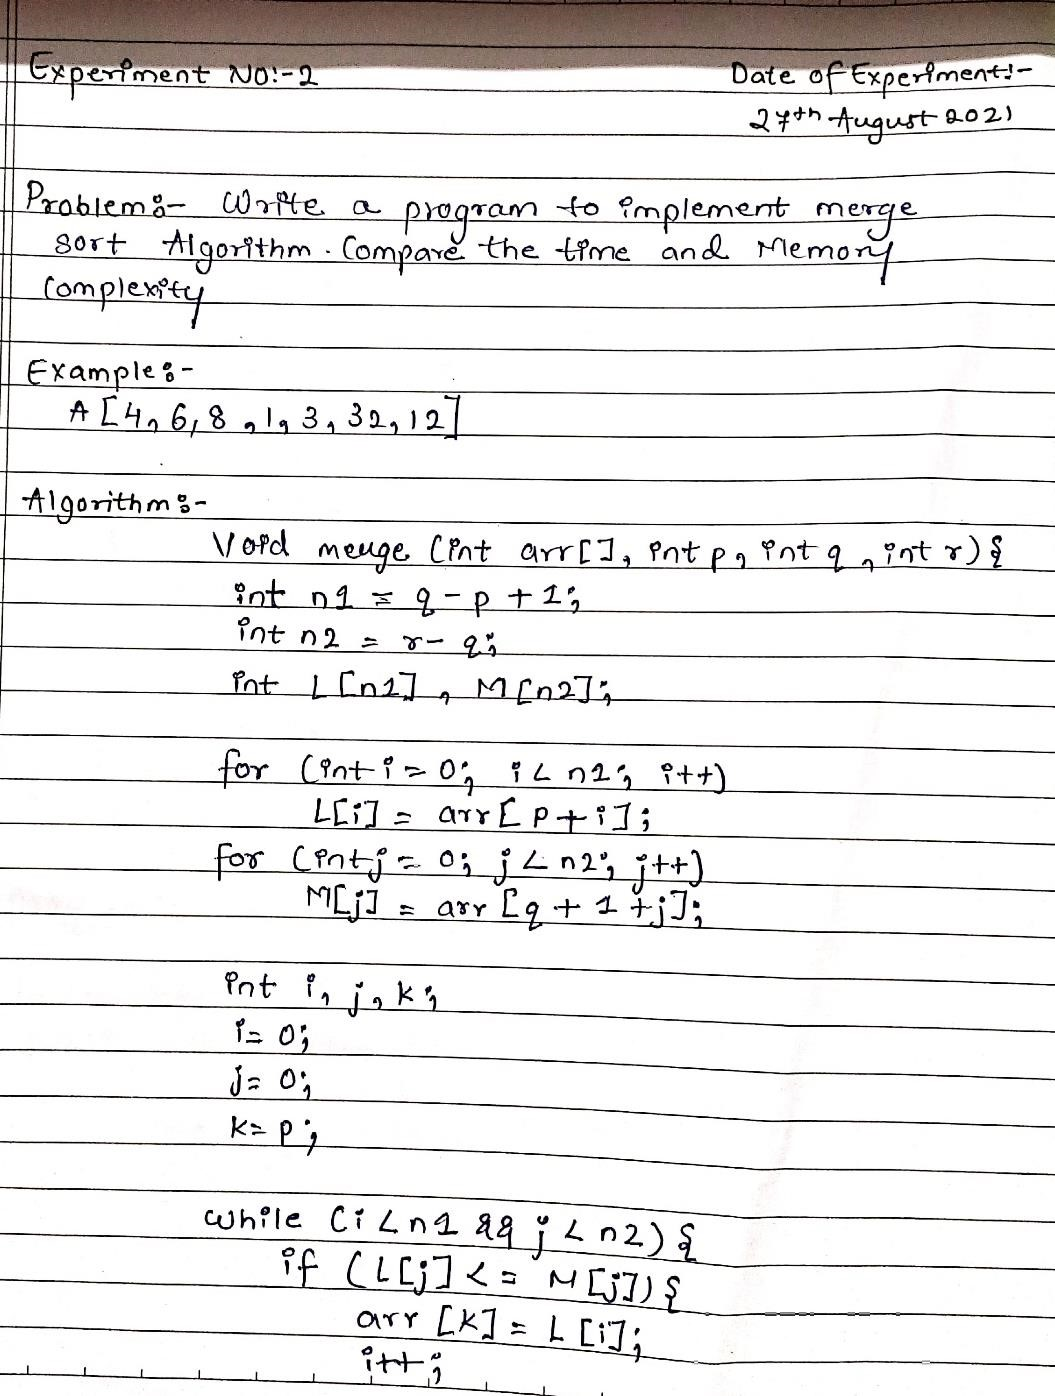 Experiment NO:-2
Date of Experiment:-
27th August 2021
Problem:- Write a program to implement merge
sort Algorithm. Compare the time and Memory
Complexity
Example:-
A [4, 6, 8, 1, 3, 32, 12]
Algorithm:-
Void merge (int arr[], int p, int q, int r) {
int n1 = q - p + 1;
int n2 = r - q;
int L [n1], M [n2];
for (int i = 0; i < n1; i++)
L[i] = arr [p + i];
for (int j = 0; j < n2; j++)
M[j] = arr [q + 1 + j];
int i, j, k;
i = 0;
j = 0;
k = p;
while (i < n1 && j < n2) {
if (L[j] <= M [j]) {
arr [k] = L [i];
i++;